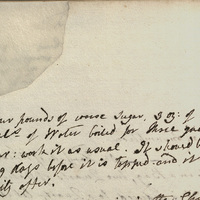 ur pounds of coarse sugar. 33: of
al:s of Water boiled for three qua
er: work it as usual. It should b
g Kegs before it is tapped and it
ity after.